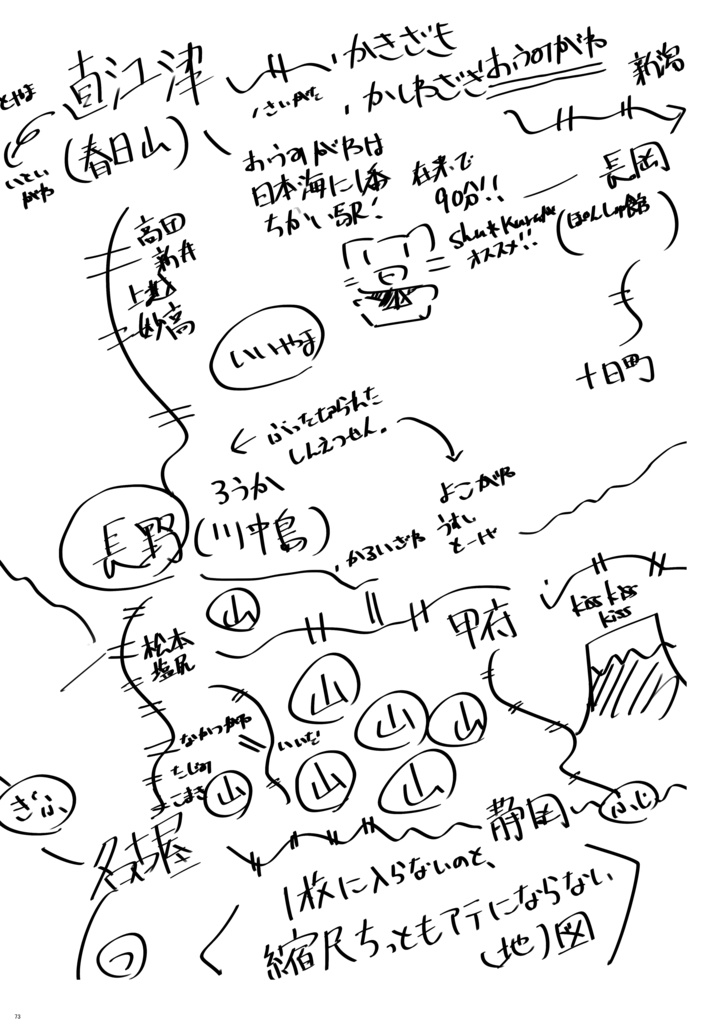 直江津
かきざき
とやま
さいがた
かしわざき
おうみがわ
新潟
(春日山)
いとい
がわ
おうみがわは
日本海に1番
ちかい駅!
在来で
90分!!
長岡
Shu*Kura
オススメ!!
(ぽんしゅ館)
高田
新井
上越
妙高
いいやま
十日町
ぶったぎられた
しんえつせん。
ろうか
よこがわ
長野
(川中島)
うすい
とーげ
かるいざわ
山
甲府
kiss kiss
kiss
松本
塩尻
山
山
山
なかつがわ
いいだ
たじみ
こまき
ぎふ
山
山
山
ふじ
名古屋
静岡
1枚に入らないのと、
縮尺ちっともアテにならない
(地)図
73